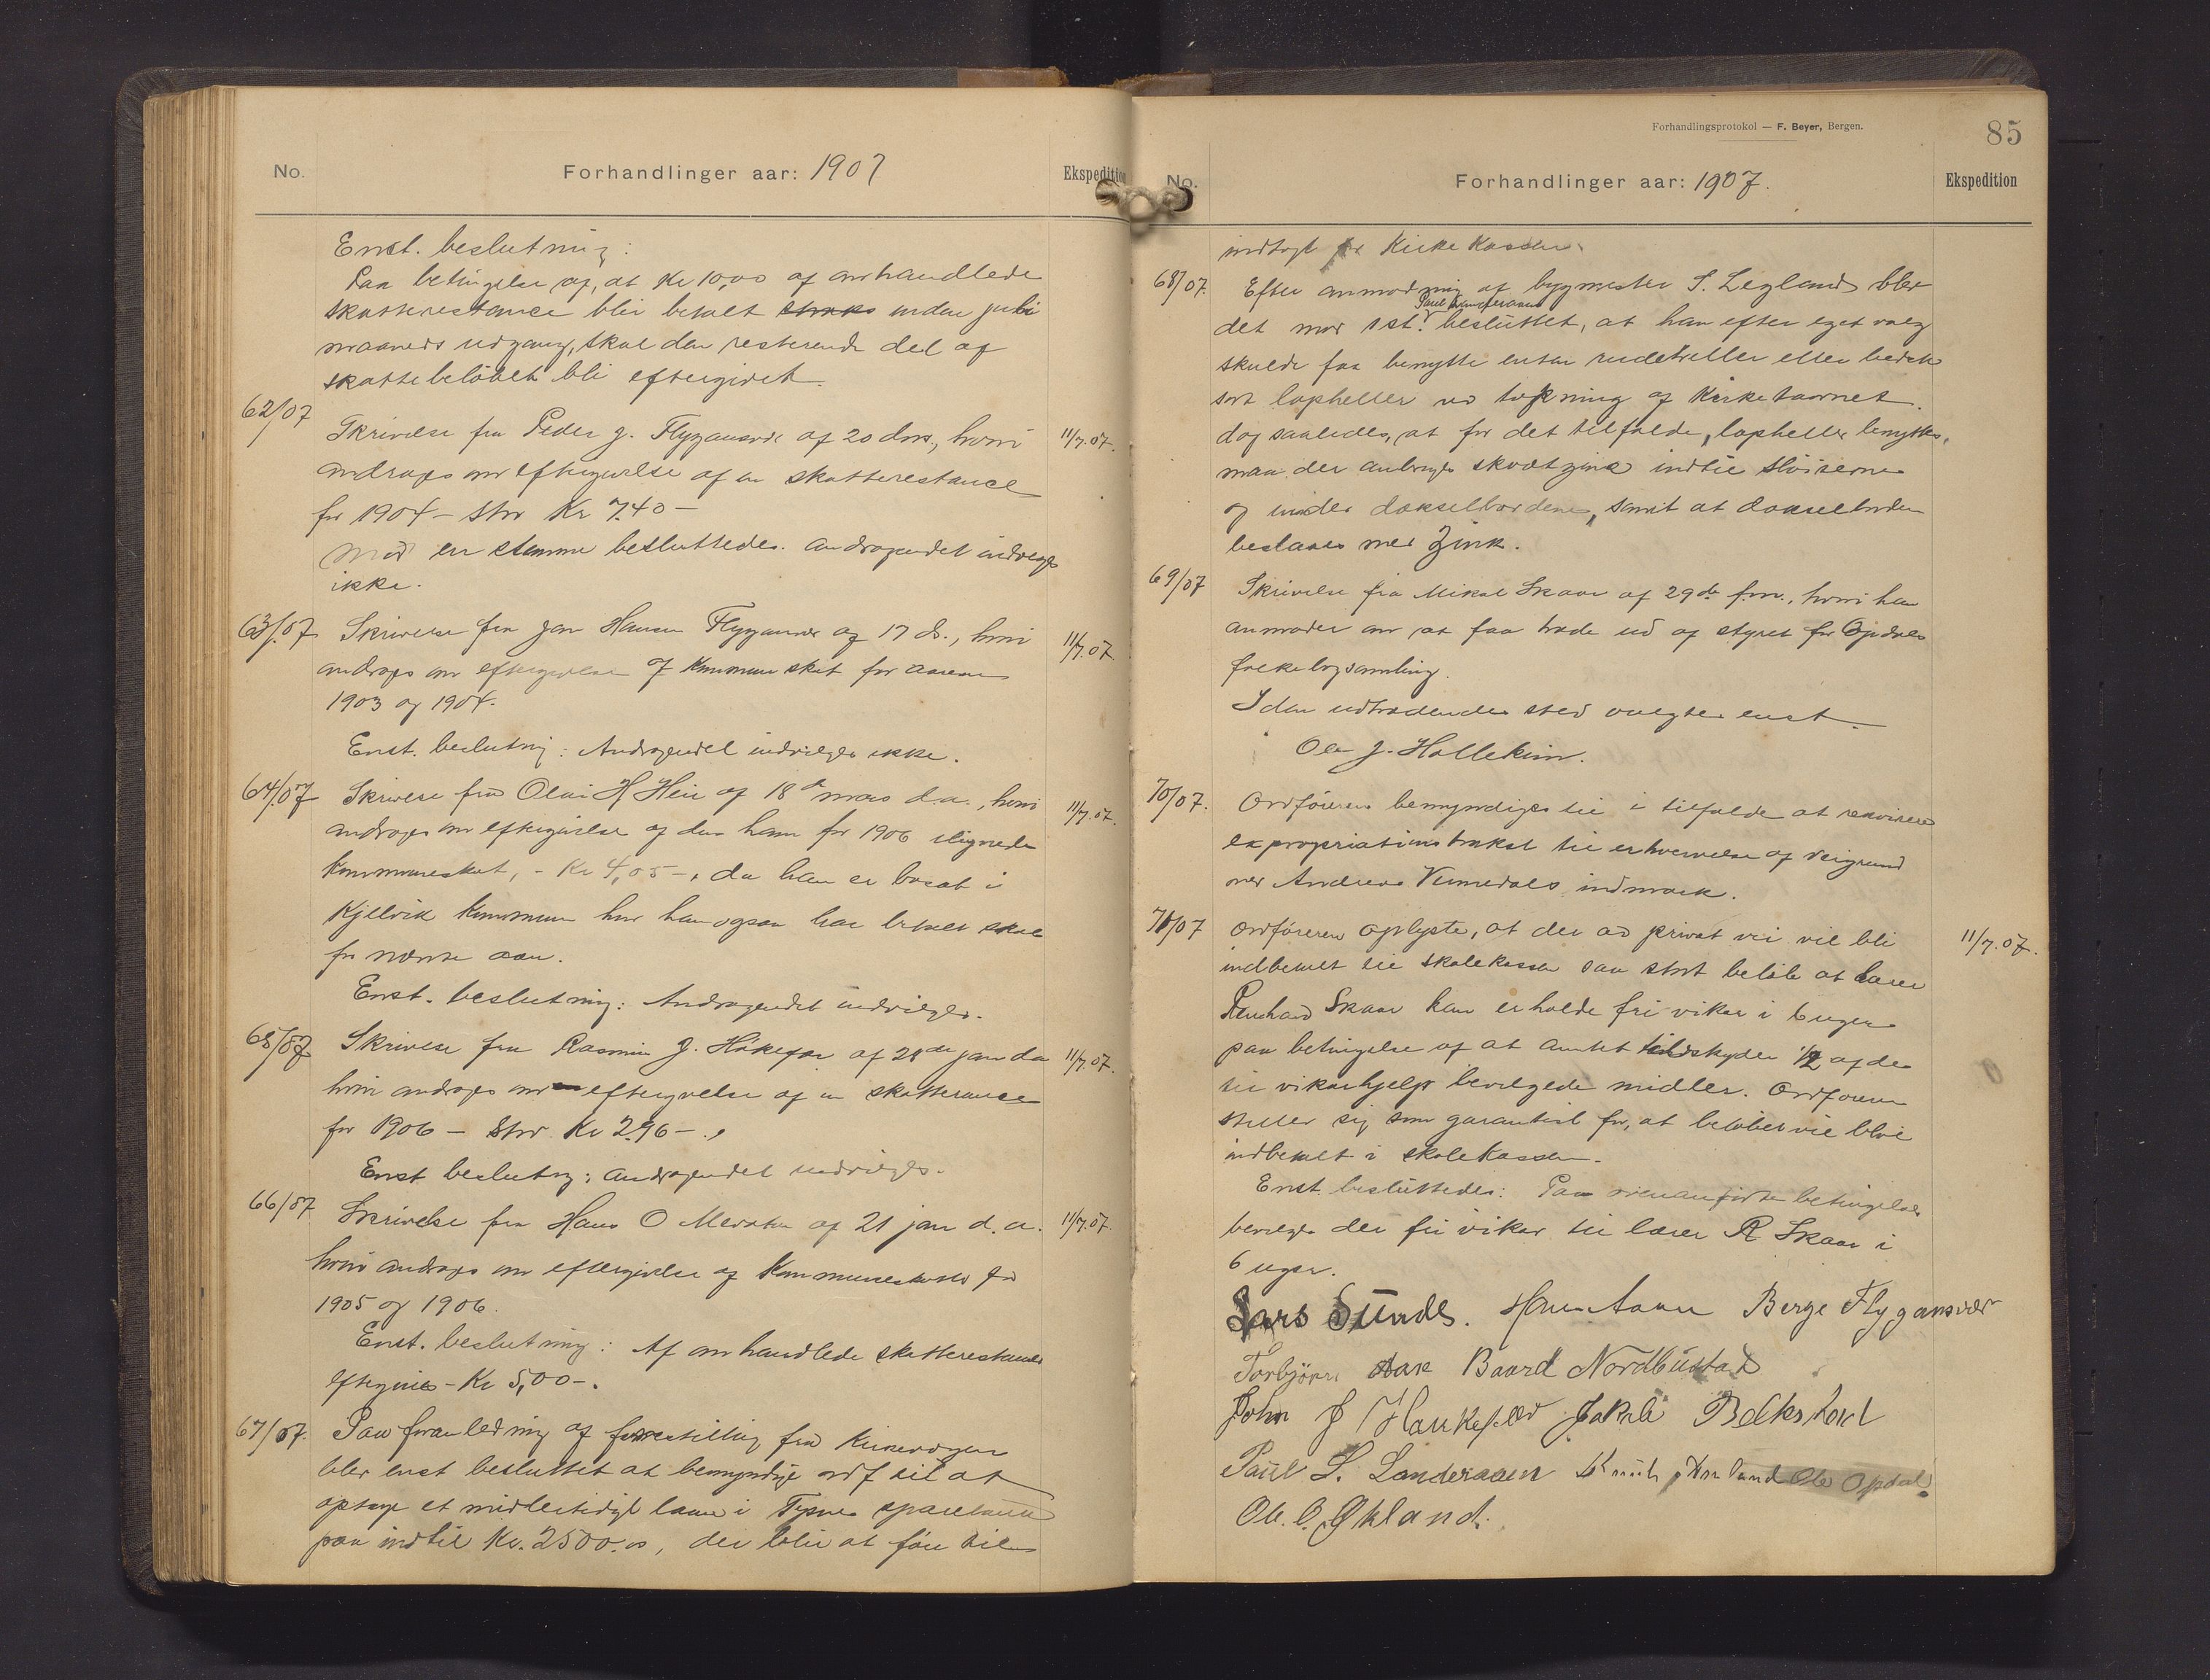 No. Forhandlinger aar: 1907 Ekspedition
Enst. beslutning:
Paa betingelse af, at Kr 10,00 af omhandlede
skatterestance blir betalt straks inden juli
maaneds udgang, skal den resterende del af
skattebeløbet bli eftergivet.
62/07 Skrivelse fra Peder J. Flygansvær af 20 dms., hvori 11/7.07.
andrages om eftergivelse af en skatterestance
for 1904 – stor Kr 7.40 –
Mod en stemme besluttedes. Andragendet indvilges
ikke.
63/07 Skrivelse fra Jan Hansen Flygansvær af 17 ds., hvori 11/7.07.
andrages om eftergivelse af kommuneskat for aarene
1903 og 1904.
Enst. beslutning: Andragendet indvilges ikke.
64/07 Skrivelse fra Olai H Heie af 18de mars d.a., hvori 11/7.07.
andrages om eftergivelse af den ham for 1906 ilignede
kommuneskat, – Kr 4,05 –, da han er bosat i
Kjelvik kommune hvor han ogsaa har betalt skat
for nævnte aar.
Enst. beslutning: Andragendet indvilges.
65/07 Skrivelse fra Rasmus J. af 28de jan da 11/7.07.
hvori andrages om eftergivelse af en skatterance
for 1906 – Stor Kr 2.96 –.,
Enst beslutng: Andragendet indvilges.
66/07 Skrivelse fra Hans O af 21 jan d. a. 11/7.07.
hvori andrages om eftergivelse af kommuneskatter for
1905 og 1906.
Enst. beslutning: Af omhandlede skatterestance
eftergives – Kr 5,00 –.
67/07. Paa foranledning af forestilling fra Kirkevergen
blev enst besluttet at bemyndige ordf til at
optage et midlertidigt laan i Tysnes sparebank
paa indtil Kr. 2500.00, der blir at føre til
Forhandlingsprotokol — F. Beyer, Bergen. 85
No. Forhandlinger aar: 1907. Ekspedition
indtægt for Kirkekassen.
68/07. Efter anmodning af bygmester S. Legland blev
Paul Landeraaen
det mod 1 st. besluttet, at han efter eget valg
skulde faa benytte enten rudeheller eller bedste
sort lapheller ved tækning af Kirketaarnet.
dog saaledes, at for det tilfælde, lapheller benyttes,
maa der anbringes skvætzink indtil
og under dækselbordene, samt at dækselborden
beslaaes med Zink.
69/07 Skrivelse fra Mikal Skaar af 29de f.m., hvori han
anmoder om at faa træde ud af styret for Opdals
folkebogsamling.
I den udtrædendes sted valgtes enst.
Ole J. Hollekim.
70/07. Ordføreren bemyndiges til i tilfælde at rekvirere
expropriationstakst til erhvervelse af veigrund
over Andreas Vennedals indmark.
71/07 Ordføreren oplyste, at der ad privat vei vil bli 11/7.07.
indbetalt til skolekassen saa stort beløb at lærer
Skaar kan erholde fri vikar i 6 uger
paa betingelse af at amtet tilskyder 1/2 af de
til vikarhjelp bevilgede midler. Ordføreren
stiller sig som garantist for, at beløbet vil blive
indbetalt i skolekassen.
Enst. besluttedes: Paa ovenanførte betingelser
bevilges der fri vikar til lærer R Skaar i
6 uger.
Lars Sunde. Berge Flygansvær
Torbjørn Aae Baard Nordbustad
John J Haukefær Jakob
Paul L. Landeraaen Ole Opdal
Ole O. Økland.